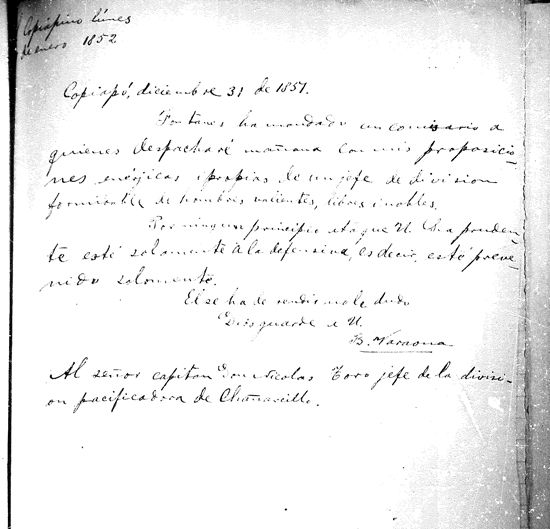 Copiapino Lúnes
de enero 1852
Copiapó, diciembre 31 de 1851.
Fontanes ha mandado un comisario a
quienes despacharé mañana con mis proposicio-
nes enérjicas i propias de un jefe de division
formidable de hombres valientes, libres i nobles.
Por ningun principio ataque U. Sea pruden-
te esté solamente a la defensiva, es decir, esté preve-
nido solamente.
El se ha de rendir no lo dudo
Dios guarde a U.
B. Varaona
Al señor capitan Don Nicolas Toro jefe de la divisi-
on pacificadora de Chañarcillo.